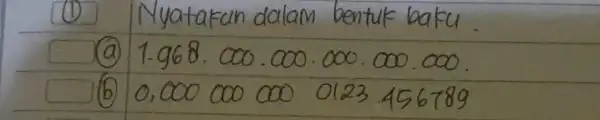 ① Nyatakan dalam bentuk baku.
ⓐ 1.968.000.000.000.000.000.
ⓑ 0,000 000 000 0123 456789